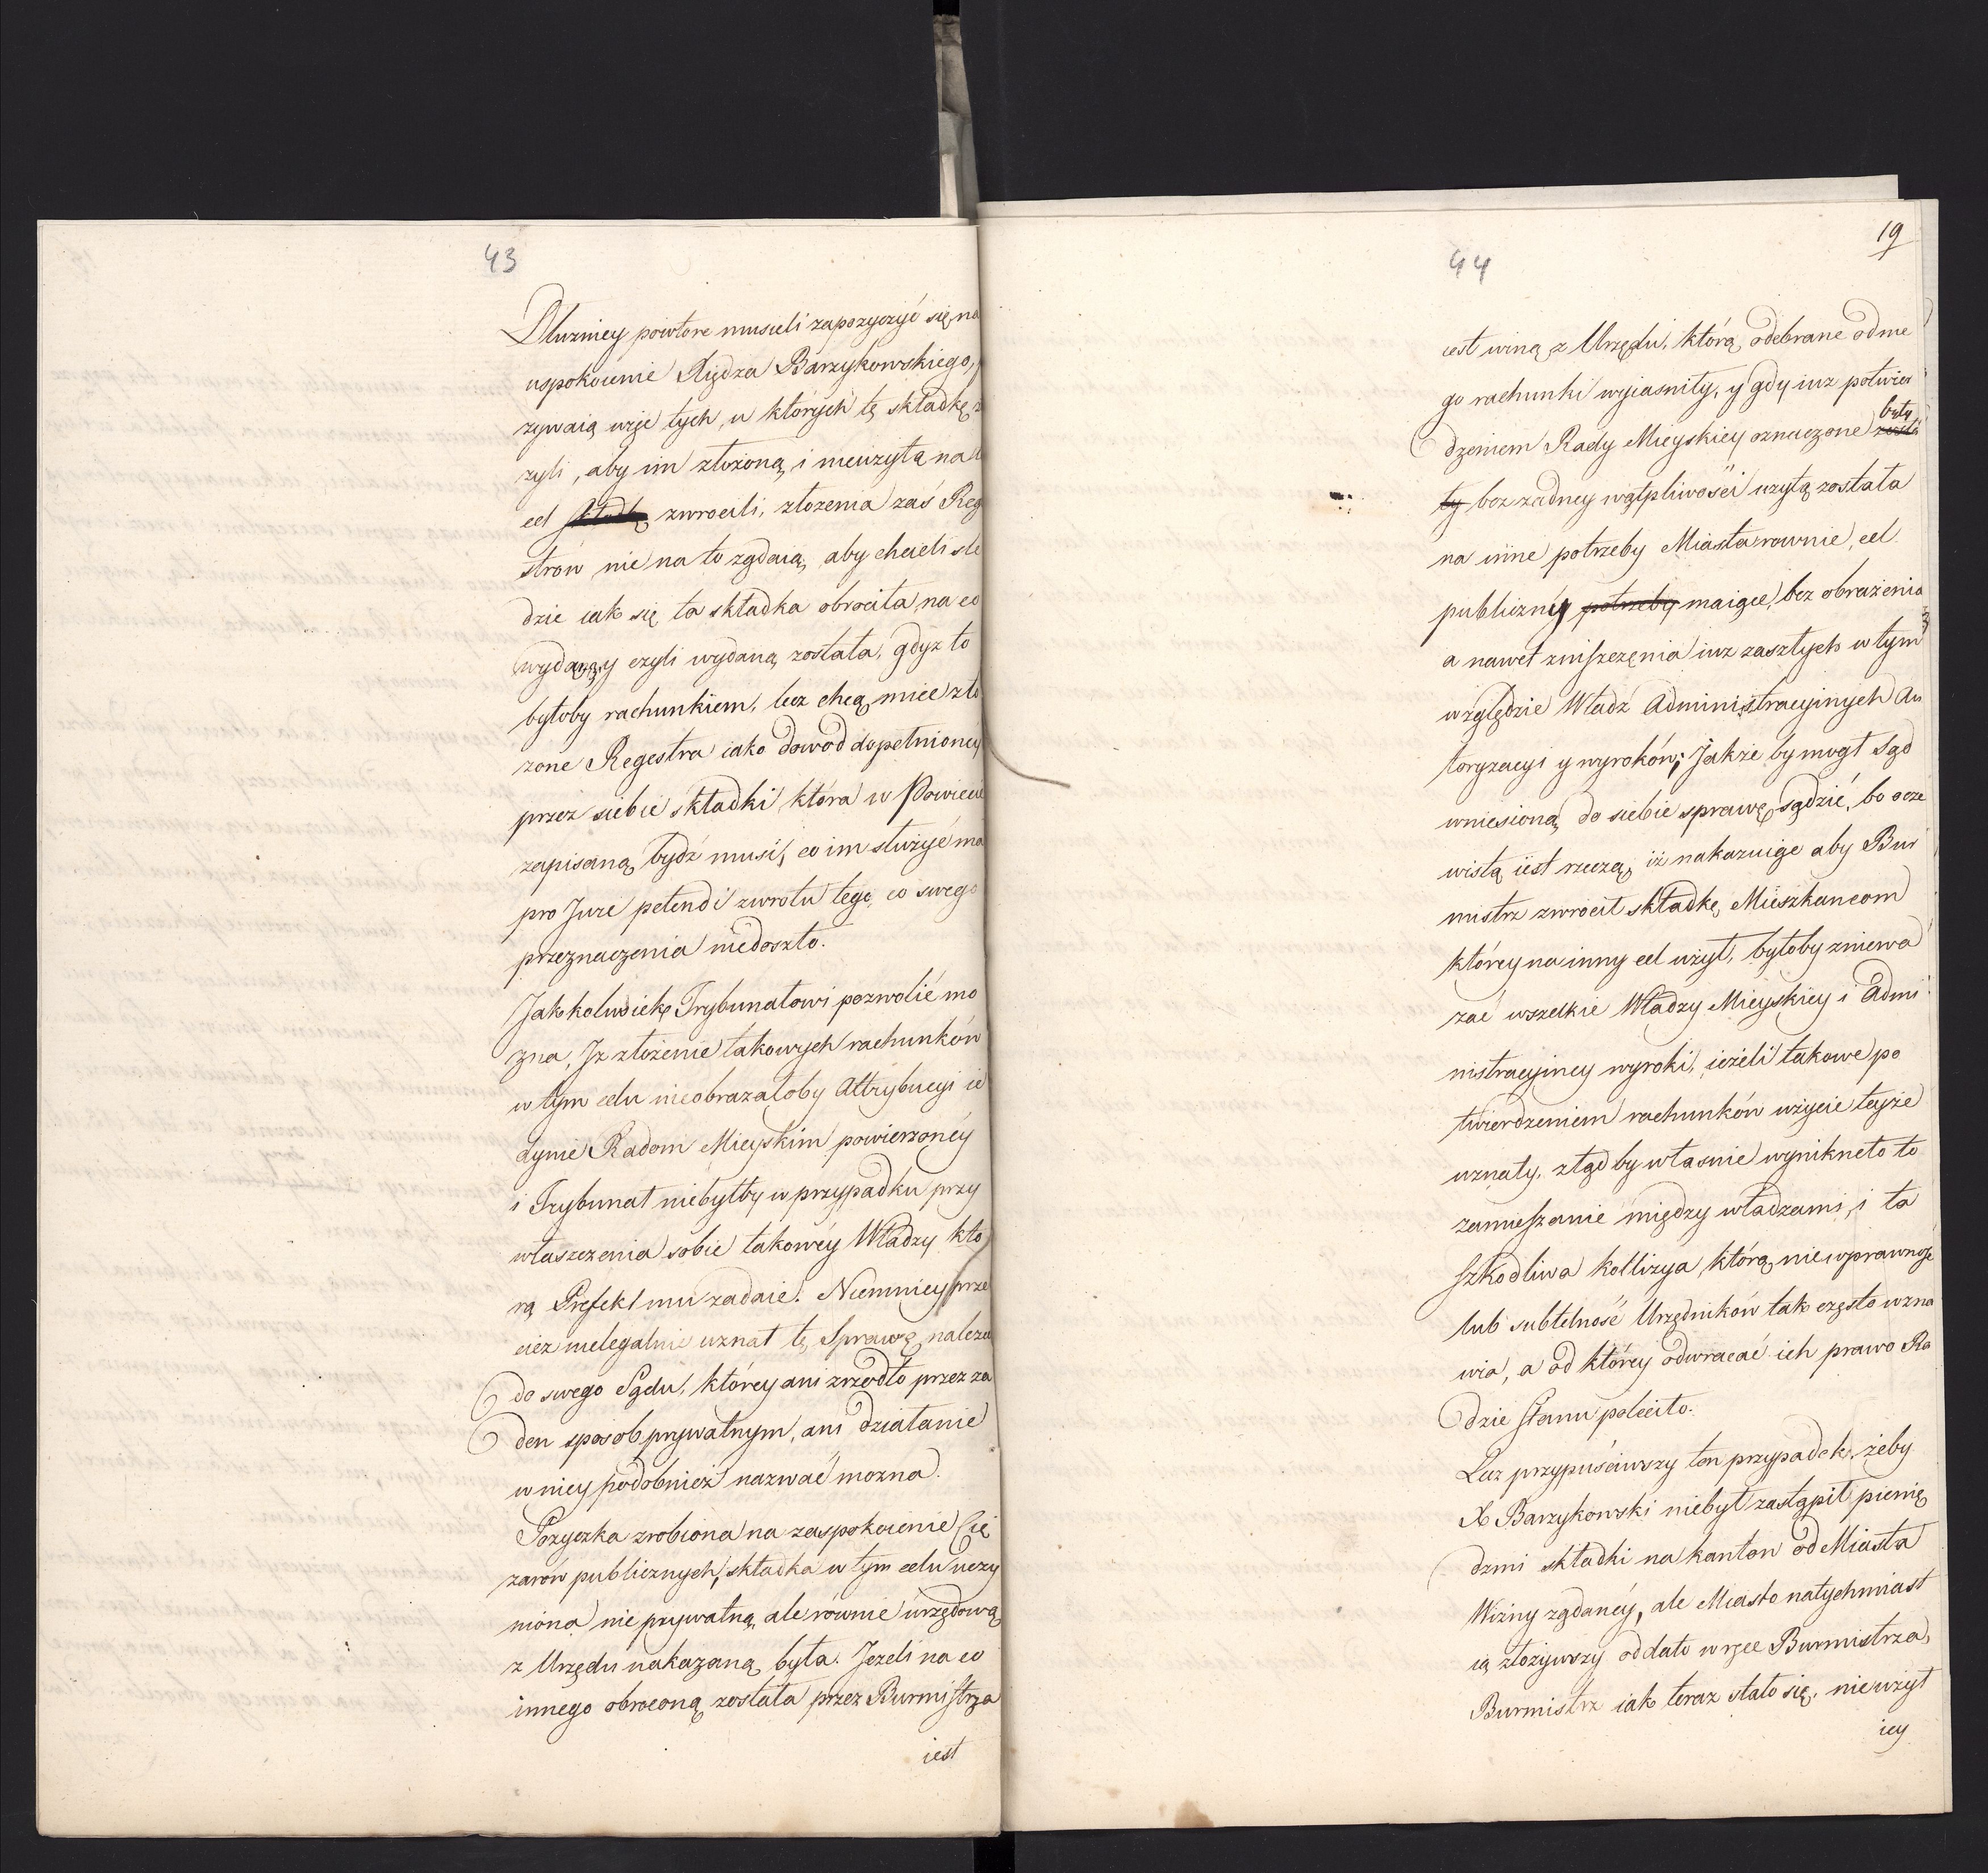 43
Dłuzniey powtore musieli zapozyczyć się na
uspokoienie Xiędza Barzykowskiego,
zywaią wzię tych, u których tę składkę
zyli, aby im złożoną i nieuzytą na
cel składkę zwrocili, złozenia zaś Reg
strow nie na to ządaią, aby chcieli sle
dzic iak się ta składka obrociła, na co
wydaney czyli wydaną została, gdyz to
byłoby rachunkiem, lecz chcą miec zło
zone Regestra iako dowod dopełnioney
przez siebie składki która w Powiecie
zapisaną bydź musi, co im służyć ma
pro Jure petendi zwrotu tego, co swego
przeznaczenia niedoszło.
Jakkolwiek Trybunałowi pozwolić mo
zna, Iz złożenie takowych rachunków
w tym celu nieobrazałoby Attrybucyi ie
dynie Radom Mieyskim powierzonéy
i Trybunał niebyłby w przypadku przy
właszczenia sobie takowéy Władzy któ
rą Prefekt mu zadaie. Niemniey prze
ciez nielegalnie uznał tę Sprawę nalezeć
do swego Sądu, którey ani zrzódło przez za
den sposob prywatnym, ani działanie
w niey podobnież nazwać mozna.
Pozyczka zrobiona na zaspokoienie Cię
zarów publicznych, składka w tym celu uczy
niona nie prywatną, ale równie urzędową
z Urzędu nakazaną była. Jezeli na co
innego obroconą została przez Burmistrza
iest
19
44
iest winą z Urzędu, którą odebrane od nie
go rachunki wyiasniły, y gdy iuz potwier
były
dzeniem Rady Mieyskiey oznaczone zosta
ły bez zadney wątpliwości uzytą została
na inne potrzeby Miasta rownie, cel
publiczny potrzeby maiące, bez obrażenia
a nawet zniszczęnia iuz zaszłych w tym
względzie Władz Administracyinych Au
toryzacyi y wyroków; Jakże by mogł Sąd
wniesioną do siebie sprawę sądzić, bo ocze
wistą iest rzeczą, iż nakazuiąc aby Bur
mistrz zwrocił składkę Mieszkancom
którey na inny cel użył, byłoby zniewa
zać wszelkie Władzy Mieyskiey i Admi
nistracyiney wyroki, ieżeli takowe po
twierdzeniem rachunków użycie teyże
uznały, ztąd by własnie wynikneło to
zamieszanie między władzami, i ta
szkodliwa kollizya, którą niewprawność
lub subtelność Urzędników tak często wzna
wia, a od którey odwracać ich prawo Ra
dzie stanu poleciło.
Lecz przypuściwszy ten przypadek, żeby
X Barzykowski niebył zastąpił pienię
dzmi składki na kanton od Miasta
Wizny ządanéy, ale Miasto natychmiast
ią złożywszy oddało w ręce Burmistrza,
Burmistrz iak teraz stało się, nieużył
iey